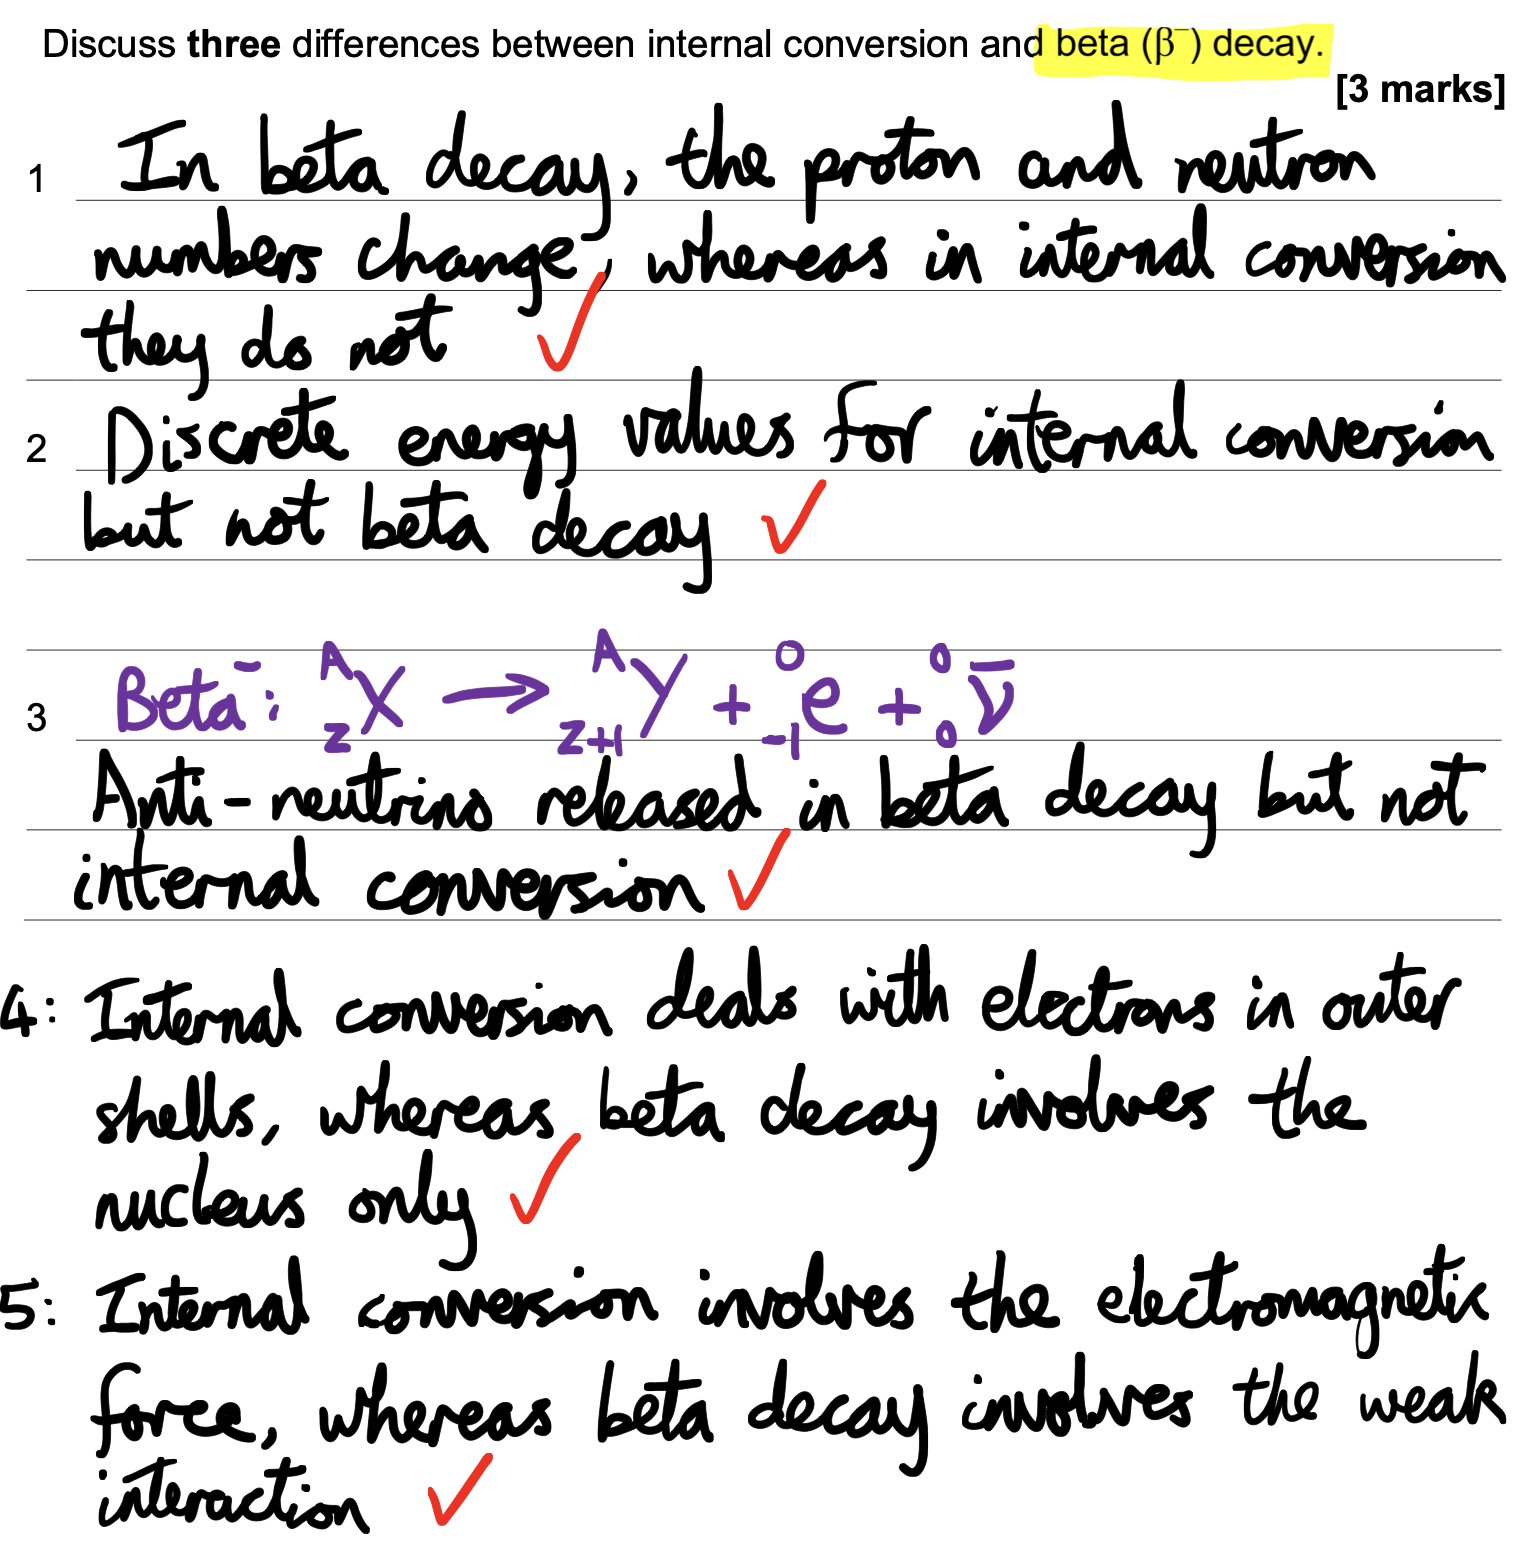 Discuss three differences between internal conversion and beta (β⁻) decay.
[3 marks]
1 In beta decay, the proton and neutron
numbers change, whereas in internal conversion
they do not ✓
2 Discrete energy values for internal conversion
but not beta decay ✓
3 Beta⁻: ᴬ_Z X → ᴬ_Z+1 Y + ⁰_-1 e + ⁰_0 ν̅
Anti-neutrino released in beta decay but not
internal conversion ✓
4: Internal conversion deals with electrons in outer
shells, whereas beta decay involves the
nucleus only ✓
5: Internal conversion involves the electromagnetic
force, whereas beta decay involves the weak
interaction ✓